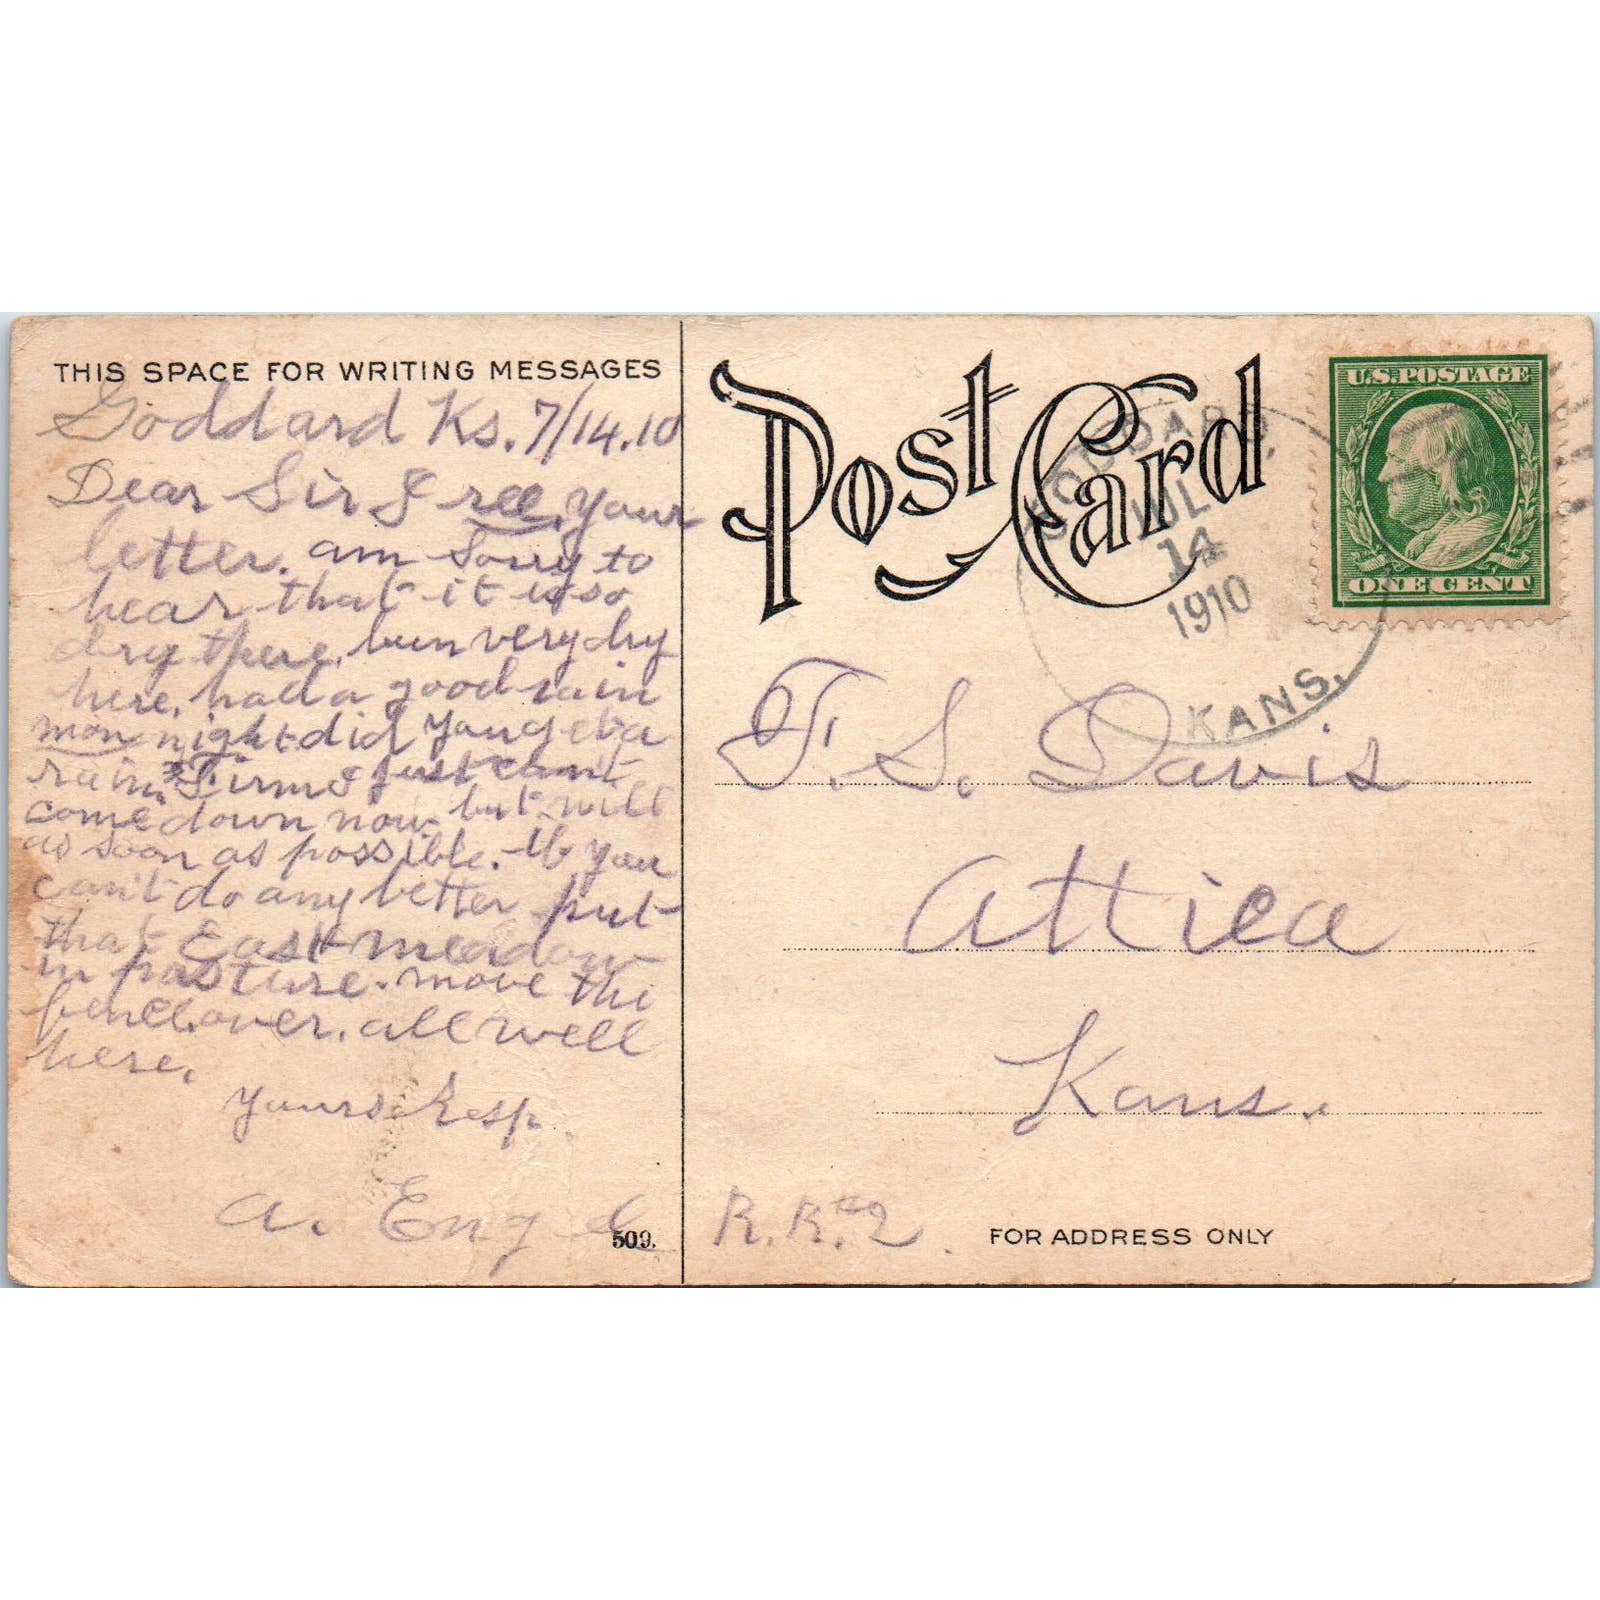 THIS SPACE FOR WRITING MESSAGES
Goddard Ks. 7/14.10
Dear Sir I rec. your
letter. am sorry to
hear that it is so
dry there. bun very dry
here. had a good rain
mon night did you get a
rain.
just can't
come down now but will
as soon as possible. If you
can't do any better put
that East meadow
in pasture. move the
fence over. all well
here.
Yours Resp.
A. Eng
509.
Post Card
GODDARD,
JUL
14
1910
KANS.
U.S. POSTAGE
ONE CENT
F. S. Davis
Attica
Kans.
R.R. #2.
FOR ADDRESS ONLY